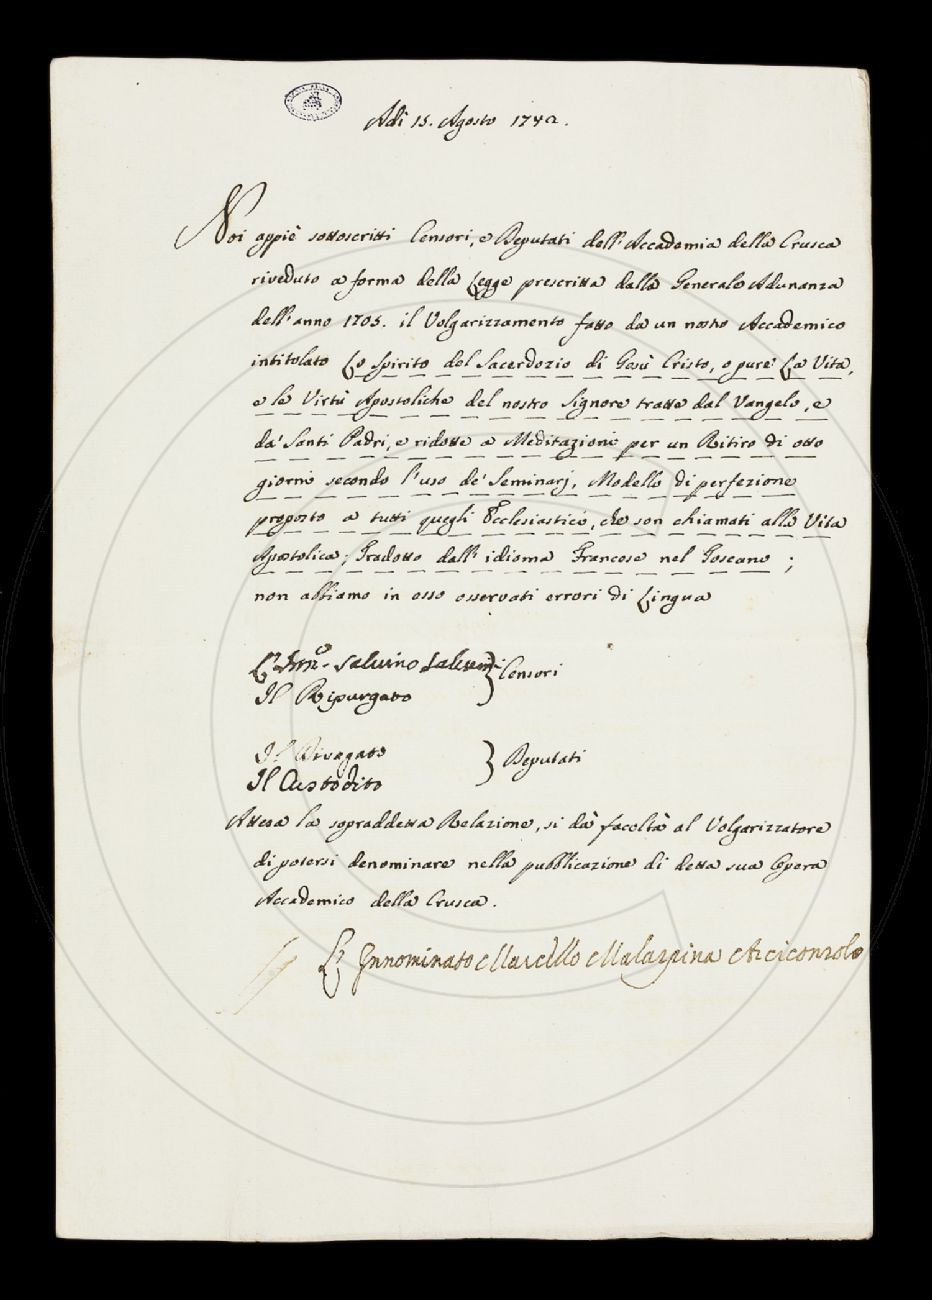 Adì 15. Agosto 1742.
Noi appiè sottoscritti Censori, e Deputati dell'Accademia della Crusca
riveduto a forma della Legge prescritta dalla Generale Adunanza
dell'anno 1705. il Volgarizzamento fatto da un nostro Accademico
intitolato Lo Spirito del Sacerdozio di Gesù Cristo, o pure La Vita,
e le Virtù Apostoliche del nostro Signore tratte dal Vangelo, e
da' Santi Padri, e ridotte a Meditazioni per un Ritiro di otto
giorni secondo l'uso de' Seminarj, Modello di perfezione
proposto a tutti quegli Ecclesiastici, che son chiamati alla Vita
Apostolica; Tradotto dall'idioma Francese nel Toscano ;
non abbiamo in esso osservati errori di Lingua
Salvino Salvini } Censori
Il Ripurgato
Il Divagato } Deputati
Il Custodito
Attesa la sopraddetta Relazione, si dà facoltà al Volgarizzatore
di potersi denominare nella pubblicazione di detta sua Opera
Accademico della Crusca.
L'Innominato Marcello Malaspina Arciconsolo